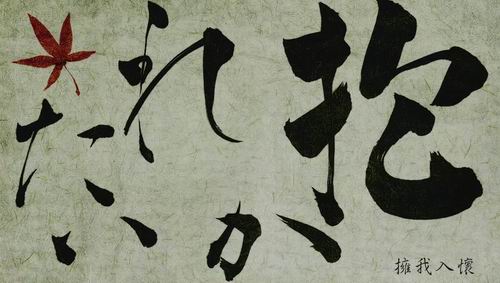 抱かれたい
擁我入懷